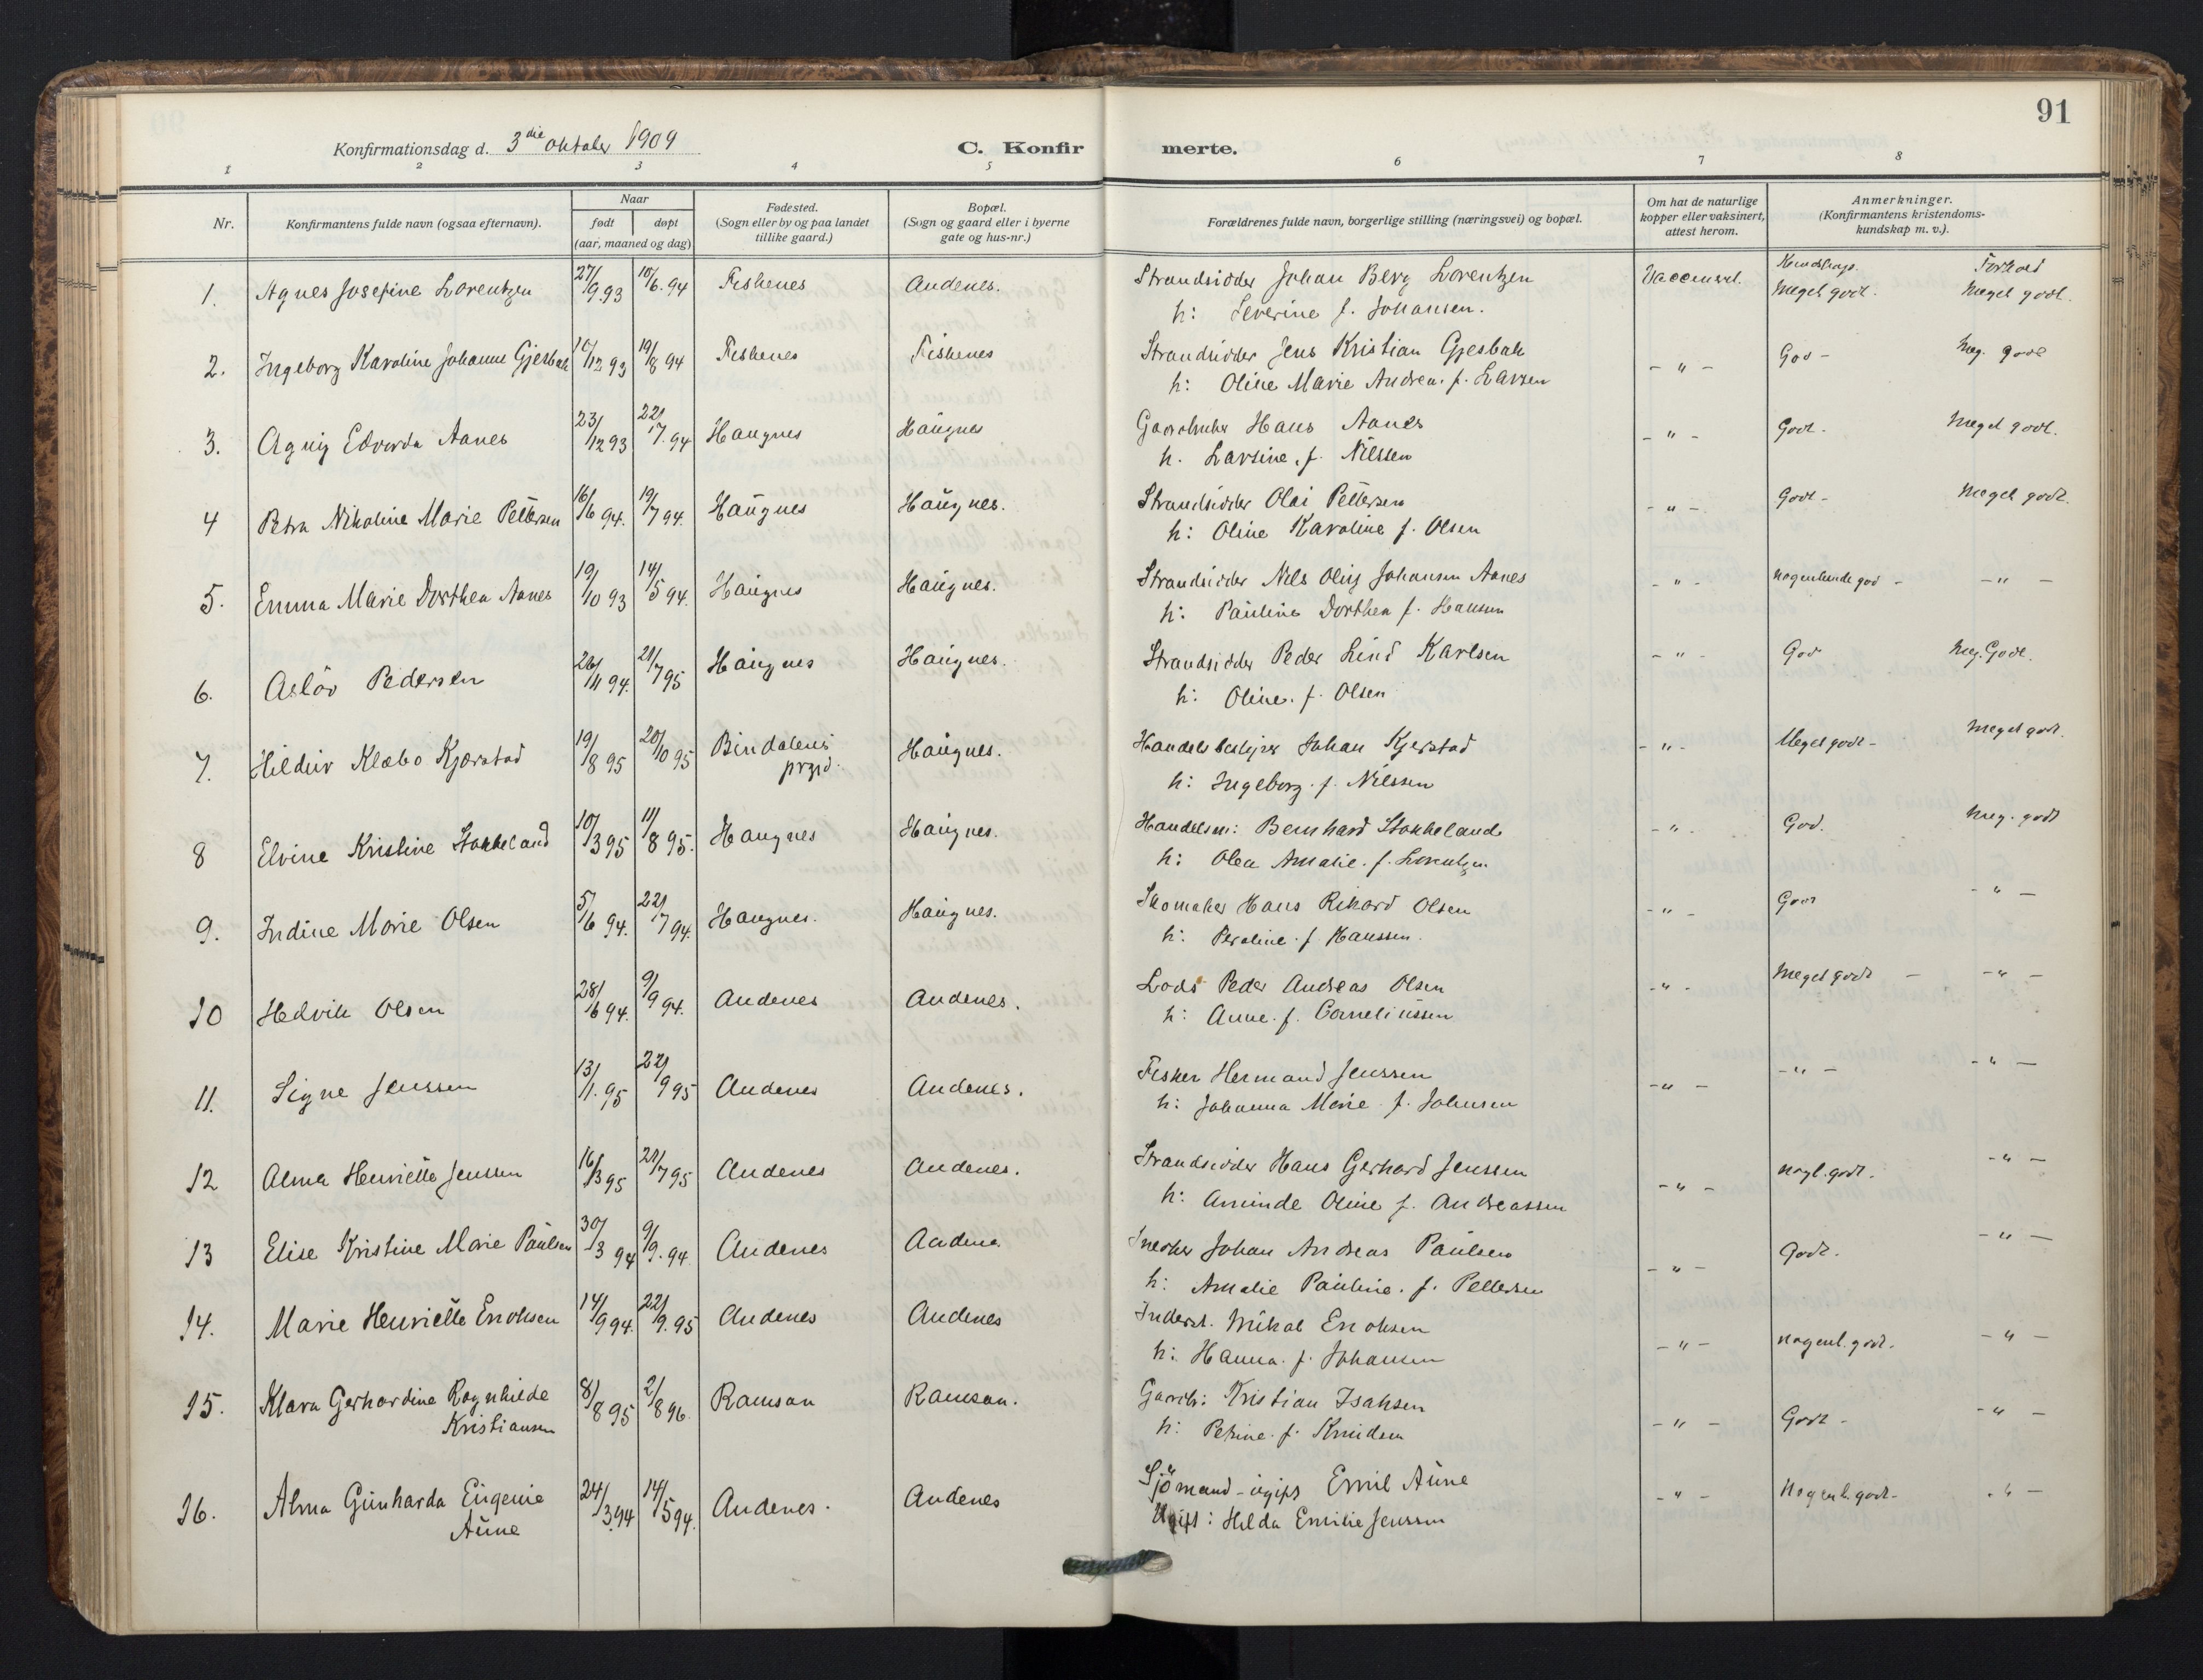 91
Konfirmationsdag d. 3die oktober 1909
C. Konfirmerte.
1 2 3 4 5 6 7 8
Nr.
Konfirmantens fulde navn (ogsaa efternavn).
Naar
født døpt
(aar, maaned og dag)
Fødested.
(Sogn eller by og paa landet
tillike gaard.)
Bopæl.
(Sogn og gaard eller i byerne
gate og hus-nr.)
Forældrenes fulde navn, borgerlige stilling (næringsvei) og bopæl.
Om hat de naturlige
kopper eller vaksinert,
attest herom.
Anmerkninger.
(Konfirmantens kristendoms-
kundskap m. v.).
Kundskap. Forhold
1. Agnes Josefine Lorentzen 27/9.93 10/6.94 Fiskenes Andenes. Strandsidder Johan Berg Lorentzen Vaccinert. Meget godt. Meget godt.
h: Severine f. Johansen.
2. Ingeborg Karoline Johanne Gjesbak 10/12 93 19/8 94 Fiskenes Fiskenes Strandsidder Jens Kristian Gjesbak - " - God - Meg. godt
h: Oline Marie Andrea. f. Larsen
3. Agnig Edvarda Aanes 23/12 93 22/7.94 Haugnes Haugnes Gaardbruker Hans Aanes - " - Godt. Meget godt.
h. Larsine. f. Nilssen
4 Petra Nikoline Marie Pettersen 16/6 94. 19/7 94. Haugnes Haugnes. Strandsidder Olai Pettersen - " - Godt - Meget godt.
h: Oline Karoline f. Olsen
5. Emma Marie Dorthea Aanes 19/10 93 14/5 94. Haugnes Haugnes. Strandsidder Nils Olug Johansen Aanes - " - Nogenlunde god - - " -
h: Pauline Dorthea f. Hansen
6. Aslöv Pedersen 26/11 94. 21/7 95 Haugnes Haugnes. Strandsidder Peder Lind Karlsen - " - God Meg. Godt.
h: Oline. f. Olsen
7. Hildur Klæbo Kjærstad 19/8 95 20/10 95 Bindalens Haugnes. Handelsbestyrer Johan Kjerstad - " - Meget godt - Meget godt.
przgd.
h: Ingeborg. f. Nilssen
8 Elvine Kristine Stokkeland 10/3 95 11/8 95. Haugnes Haugnes. Handelsm: Bernhard Stokkeland - " - God. Meg. godt
h: Olea Amalie. f. Lorentzen
9. Indine Marie Olsen 5/6 94. 22/7 94. Haugnes. Haugnes. Skomaker Hans Rikard Olsen - " - Godt - " -
h: Peroline. f. Hanssen.
10 Hedvik Olsen 28/6 94. 9/9 94. Andenes Andenes. Lods Peder Andreas Olsen - " - Meget godt - - " -
h: Anne. f. Corneliussen
11. Signe Jenssen 13/1. 95 22/9 95 Andenes Andenes. Fisker Hermand Jenssen - " - - " - - " -
h: Johanna Marie f. Johnsen
12 Alma Henriette Jenssen 16/3 95 21/7 95 Andenes Andenes. Strandsidder Hans Gerhard Jenssen - " - Nogl. godt. - " -
h: Aminde Oline f. Andreassen
13 Elise Kristine Marie Paulsen 30/3 94 9/9. 94. Andenes Andenes Snedker Johan Andreas Paulsen - " - Godt. - " -
h: Amalie Pauline. f. Pettersen
14. Marie Henriette Enoksen 14/9 94. 22/9. 95 Andenes Andenes Inderst. Mikal Enoksen - " - Nogenl. godt. - " -
h: Hanna. f. Johansen
15. Klara Gerhardine Ragnhilde 8/8 95 2/8 96. Ramsan Ramsan. Gaardb: Kristian Isaksen - " - Godt - - " -
Kristiansen
h: Petrine. f. Knudsen
16. Alma Gunharda Eugenie 24/3.94 14/5 94. Andenes. Andenes Sjömand - ugift Emil Aune - " - Nogenl. godt - - " -
Aune
Ugift: Hilda Emilie Jenssen